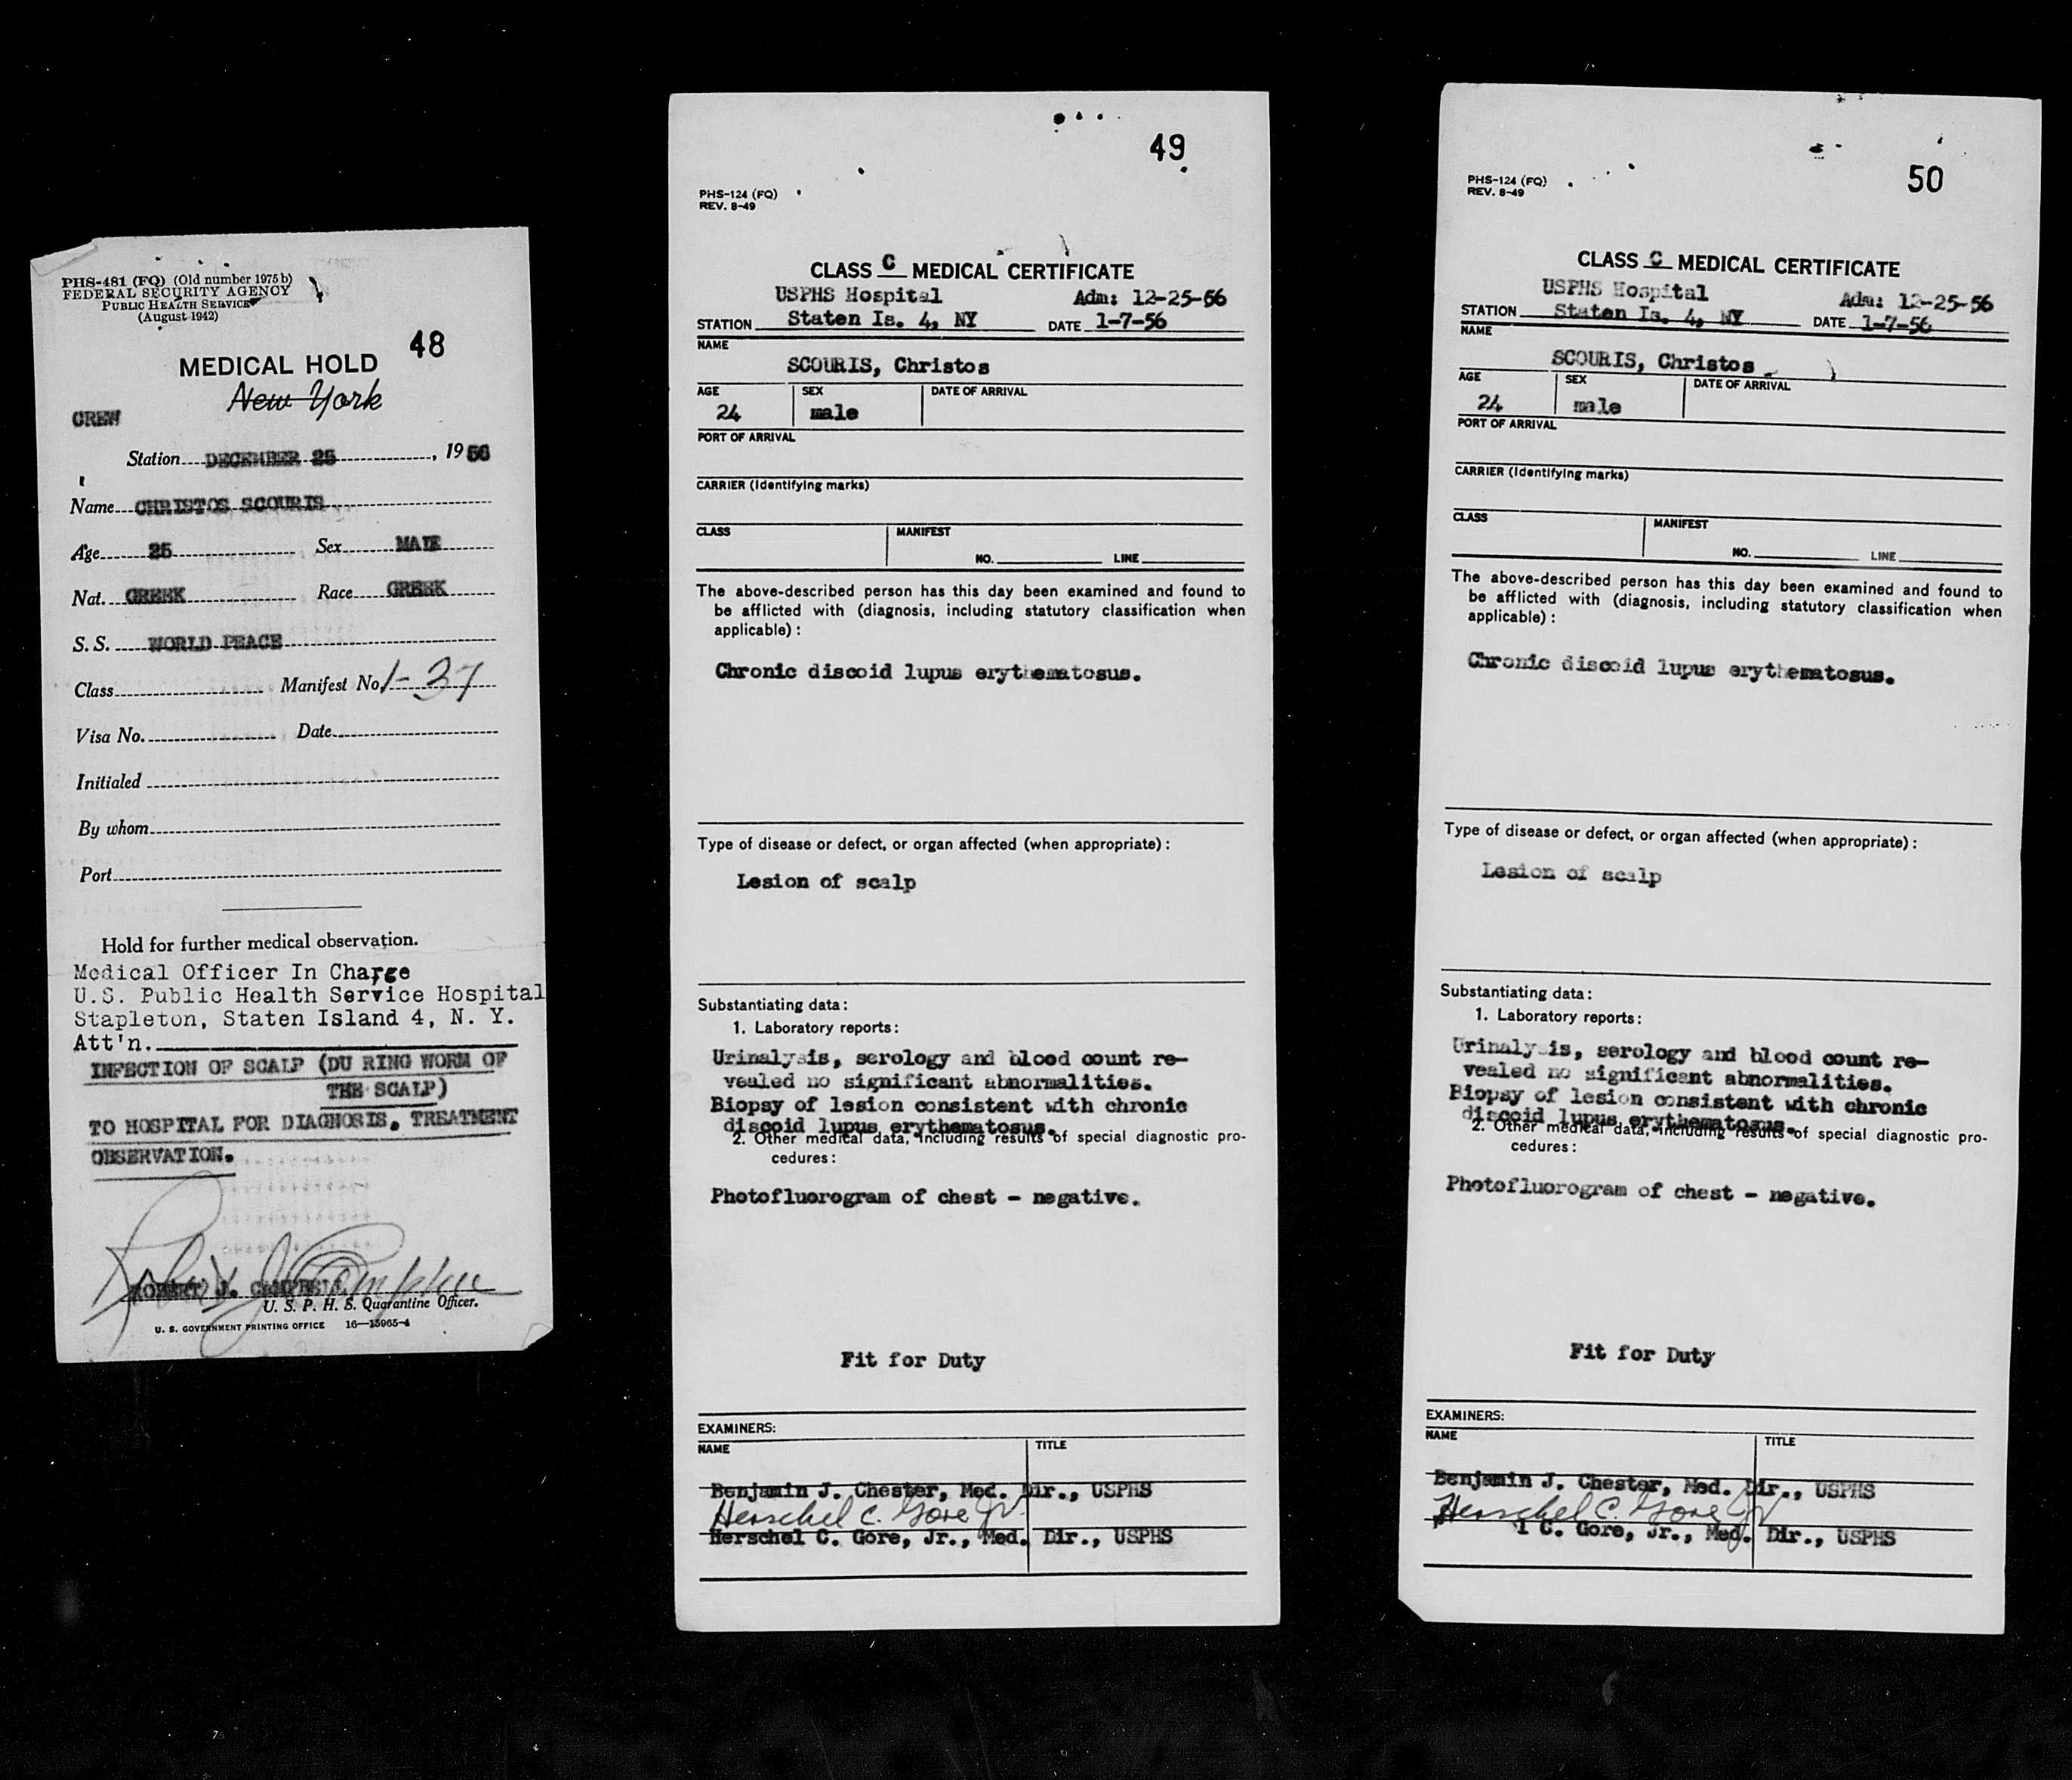 PHS-481 (FQ) (Old number 1975 b)
FEDERAL SECURITY AGENCY
PUBLIC HEALTH SERVICE
(August 1942)
48
MEDICAL HOLD
New York
CREW
Station DECEMBER 25, 1956
Name CHRISTOS SCOURIS
Age 25 Sex MALE
Nat. GREEK Race GREEK
S. S. WORLD PEACE
Class Manifest No. 1-37
Visa No. Date
Initialed
By whom
Port
Hold for further medical observation.
Medical Officer In Charge
U.S. Public Health Service Hospital
Stapleton, Staten Island 4, N. Y.
Att'n.
INFECTION OF SCALP (DU RING WORM OF
THE SCALP)
TO HOSPITAL FOR DIAGNOSIS, TREATMENT
OBSERVATION.
ROBERT J. CAMPBELL
U. S. P. H. S. Quarantine Officer.
U. S. GOVERNMENT PRINTING OFFICE 16—15965-4
49
PHS-124 (FQ)
REV. 8-49
CLASS C MEDICAL CERTIFICATE
USPHS Hospital Adm: 12-25-56
STATION Staten Is. 4, NY DATE 1-7-56
NAME
SCOURIS, Christos
AGE SEX DATE OF ARRIVAL
24 male
PORT OF ARRIVAL
CARRIER (Identifying marks)
CLASS MANIFEST
NO. LINE
The above-described person has this day been examined and found to
be afflicted with (diagnosis, including statutory classification when
applicable) :
Chronic discoid lupus erythematosus.
Type of disease or defect, or organ affected (when appropriate) :
Lesion of scalp
Substantiating data :
1. Laboratory reports :
Urinalysis, serology and blood count re-
vealed no significant abnormalities.
Biopsy of lesion consistent with chronic
discoid lupus erythematosus.
2. Other medical data, including results of special diagnostic pro-
cedures :
Photofluorogram of chest - negative.
Fit for Duty
EXAMINERS:
NAME TITLE
Benjamin J. Chester, Med. Dir., USPHS
Herschel C. Gore Jr
Herschel C. Gore, Jr., Med. Dir., USPHS
50
PHS-124 (FQ)
REV. 8-49
CLASS C MEDICAL CERTIFICATE
USPHS Hospital Adm: 12-25-56
STATION Staten Is. 4, NY DATE 1-7-56
NAME
SCOURIS, Christos
AGE SEX DATE OF ARRIVAL
24 male
PORT OF ARRIVAL
CARRIER (Identifying marks)
CLASS MANIFEST
NO. LINE
The above-described person has this day been examined and found to
be afflicted with (diagnosis, including statutory classification when
applicable) :
Chronic discoid lupus erythematosus.
Type of disease or defect, or organ affected (when appropriate) :
Lesion of scalp
Substantiating data :
1. Laboratory reports :
Urinalysis, serology and blood count re-
vealed no significant abnormalities.
Biopsy of lesion consistent with chronic
discoid lupus erythematosus.
2. Other medical data, including results of special diagnostic pro-
cedures :
Photofluorogram of chest - negative.
Fit for Duty
EXAMINERS:
NAME TITLE
Benjamin J. Chester, Med. Dir., USPHS
Herschel C. Gore Jr
l C. Gore, Jr., Med. Dir., USPHS